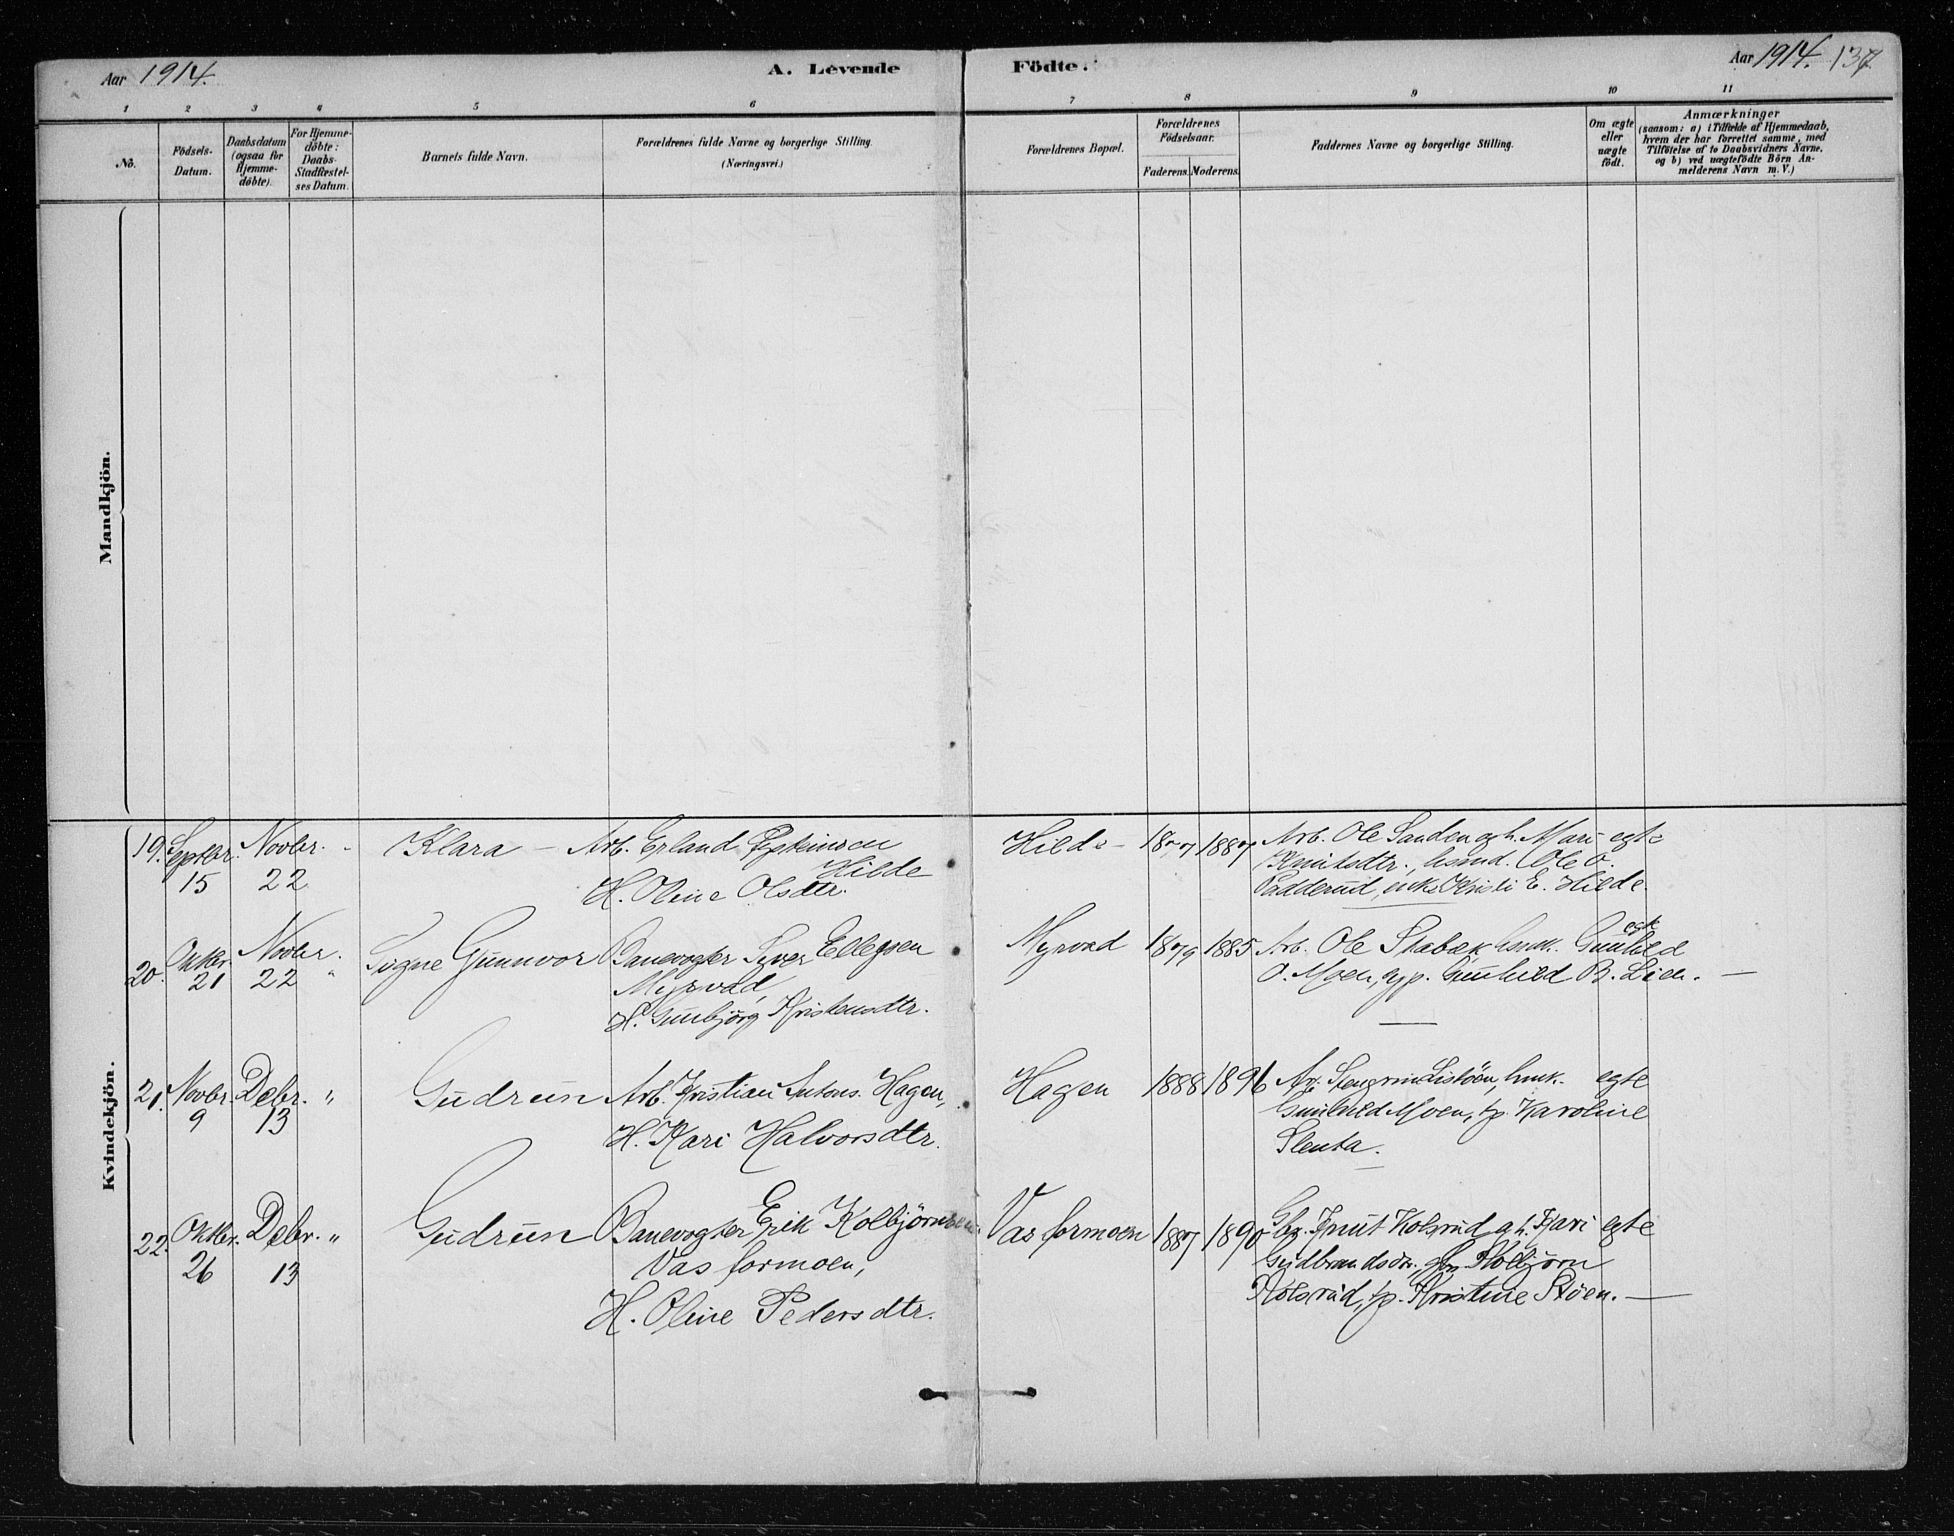 Aar 1914. A. Levende Födte. Aar 1914. 137
1 2 3 4 5 6 7 8 9 10 11
No.
Födsels-
Datum.
Daabsdatum
(ogsaa for
Hjemme-
döbte).
For Hjemme-
döbte:
Daabs-
Stadfæstel-
ses Datum.
Barnets fulde Navn.
Forældrenes fulde Navne og borgerlige Stilling.
(Næringsvei.)
Forældrenes Bopæl.
Forældrenes
Födselsaar.
Faderens. Moderens.
Faddernes Navne og borgerlige Stilling.
Om ægte
eller
uægte
födt.
Anmærkninger
(saasom: a) i Tilfælde af Hjemmedaab,
hvem der har forrettet samme, med
Tilföielse af to Daabsvidners Navne,
og b) ved uægtefödte Börn An-
melderens Navn m. V.)
Mandkjön.
Kvindekjön.
19. Septbr. Novbr. Klara – Arb. Erland
15 22 Hilde
H. Oline Olsdtr.
Hilde – 1877 1887 Arb. Ole Sanden og h. Mari egte
Knutsdtr., Ole O.
Padderud, Kristi E. Hilde.
20. Oktbr. Novbr. Signe Gunnvor Banevogter Syver Ellegsen
21 22 " Myrvad,
H. Gunbjörg Kristensdtr.
Myrvad 1879 1885 Arb. Ole Stabæk, Gunhild egte
O. Moen, Gunhild B. Lien. —
21. Novbr. Debr. " Gudrun Arb. Kristian Antons. Hagen,
9 13 H. Kari Halvorsdtr.
Hagen 1888 1896 Listöen, egte
Gunhild Moen, tp. Karoline
Slenta.
22. Oktbr. Debr. " Gudrun Banevogter Erik Kolbjörnsen
26 13 Vasformoen,
H. Oline Pedersdtr.
Vasformoen 1887 1890 Gbr. Knut Kolsrud og h. Kari egte
Gudbrandsdr., Kolbjörn
Kolsrud, tp. Kristine Stöen. —